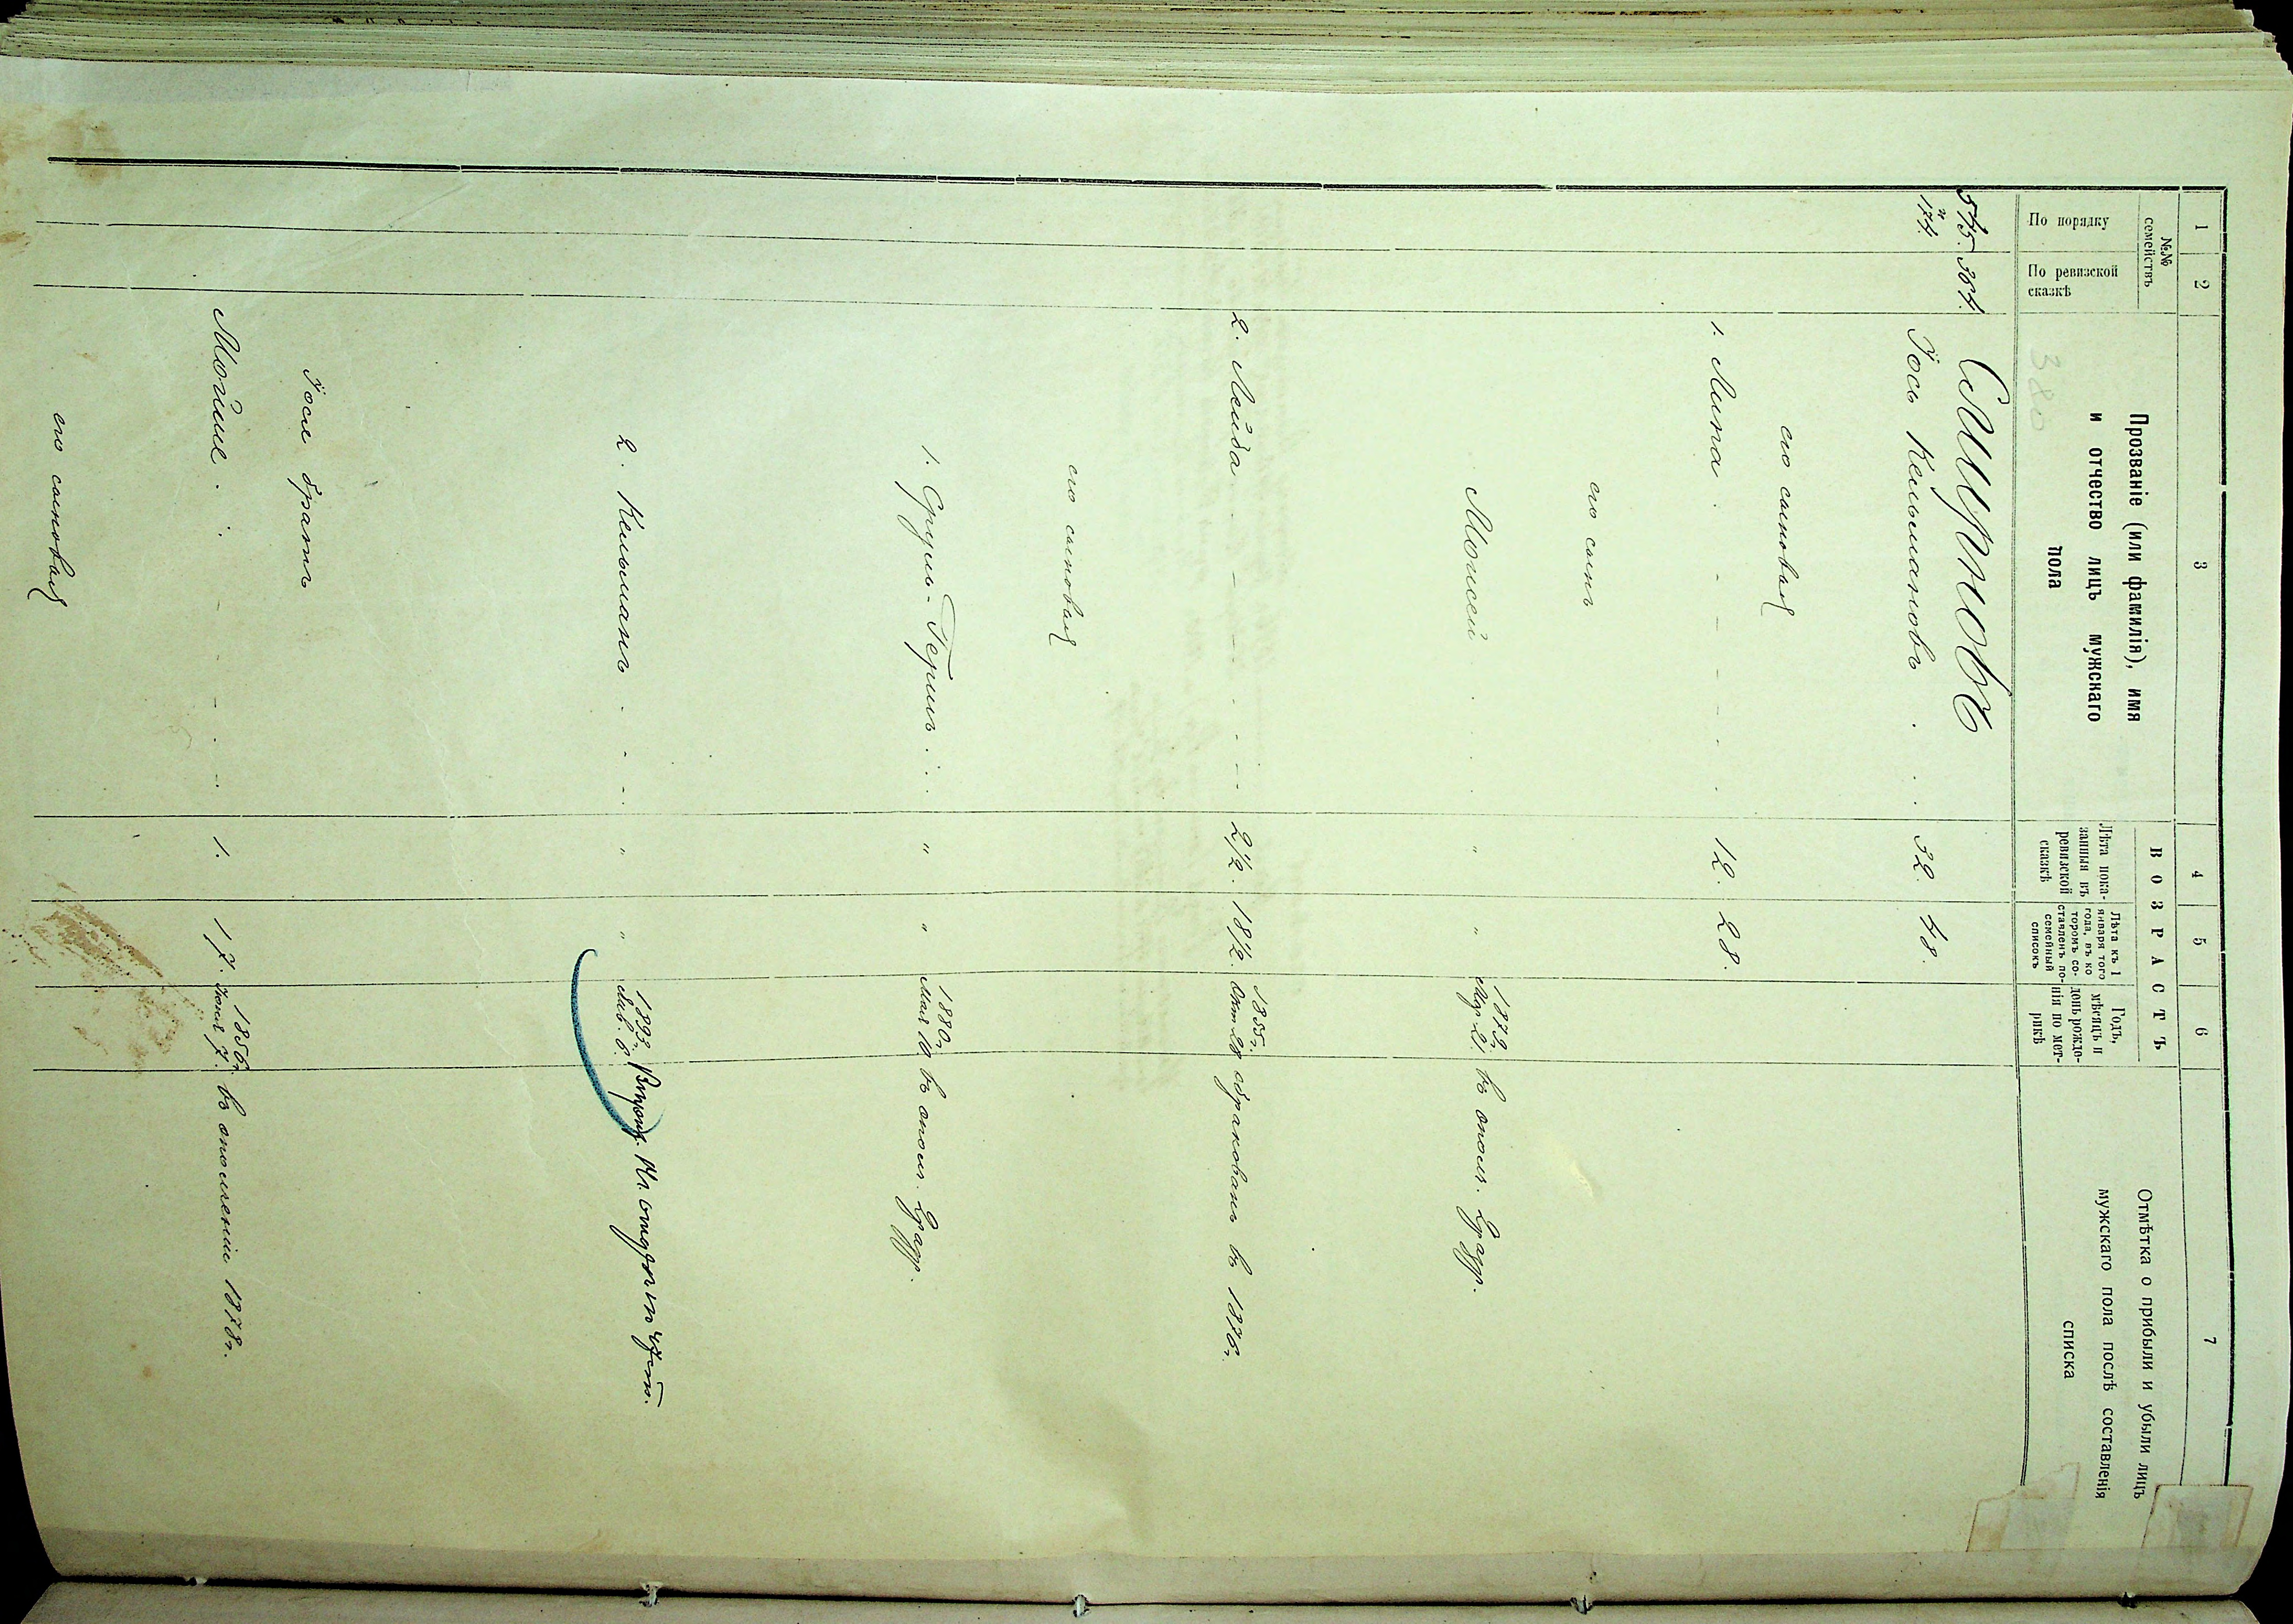 1 2 3 4 5 6 7
№№ семействъ
По порядку
По ревизской сказкѣ
Прозваніе (или фамилія), имя
и отчество лицъ мужскаго
пола
В О З Р А С Т Ъ
Лѣта пока-
занныя въ
ревизской
сказкѣ
Лѣта къ 1
января того
года, въ ко
торомъ со-
ставленъ по-
семейный
списокъ
Годъ,
мѣсяцъ и
день рожде-
нія по мет-
рикѣ
Отмѣтка о прибыли и убыли лицъ
мужскаго пола послѣ составленія
списка
3880
545. 364.
174.
Іось Кельмановъ . . . 32. 48.
его сыновья
1. Липа . - - - - . 12. 28.
его сынъ
Мовсей . . . " " 1879г. Мар. 21. въ ополч. 2 разр.
2. Лейба . - - . - - 2½. 18½. 1855г. Окт 28 обракованъ въ 1876г.
его сыновья
1. Сруль-Гершъ . . . " " 1880г. Мая 10. въ ополч. 2 разр.
2. Кельманъ - - - . " " 1893г. 6.
Іося братъ
Мойше . . - - . - 1. 17. 1856г. Іюня 7. въ ополченіи 1878г.
его сыновья